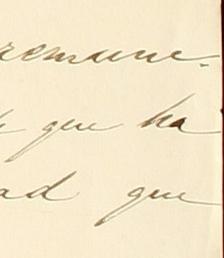 remune-
que ha
ad que